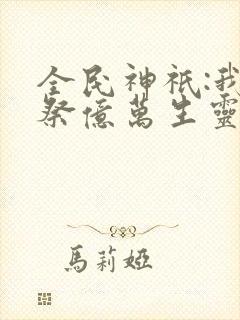 全民神祇:我
祭億萬生靈
馬莉婭